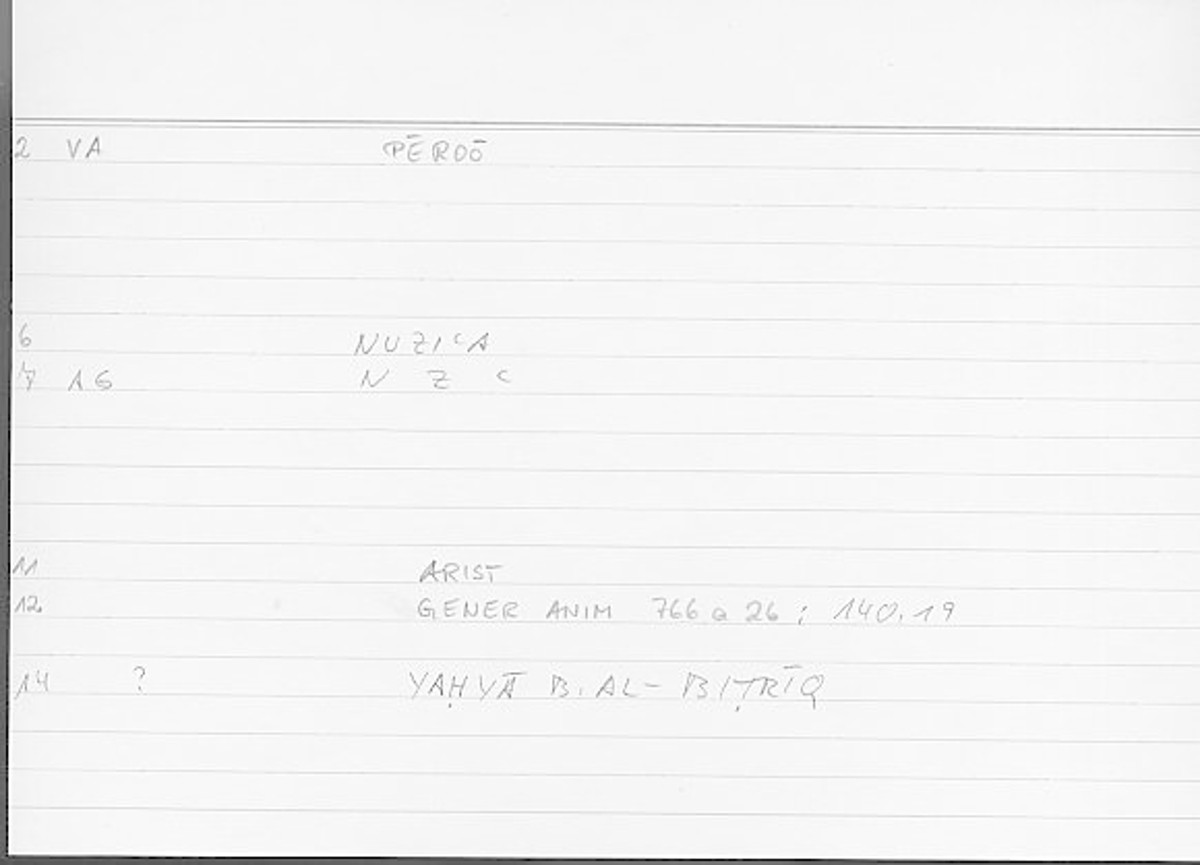 2 VA PĒROŌ
6 NUZIʿA
7 1G N Z ʿ
11 ARIST
12 GENER ANIM 766 a 26 ; 140.19
14 ? YAḤYĀ B. AL-BIṬRĪQ